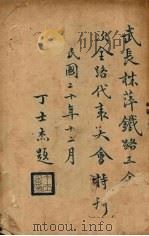 武長株萍鐵路三全
次全路代表大會特刊
民國二十年十二月
丁士杰題